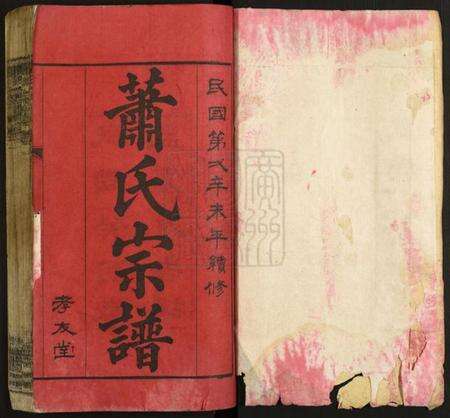 民國第辛未年續修
蕭氏宗譜
孝友堂